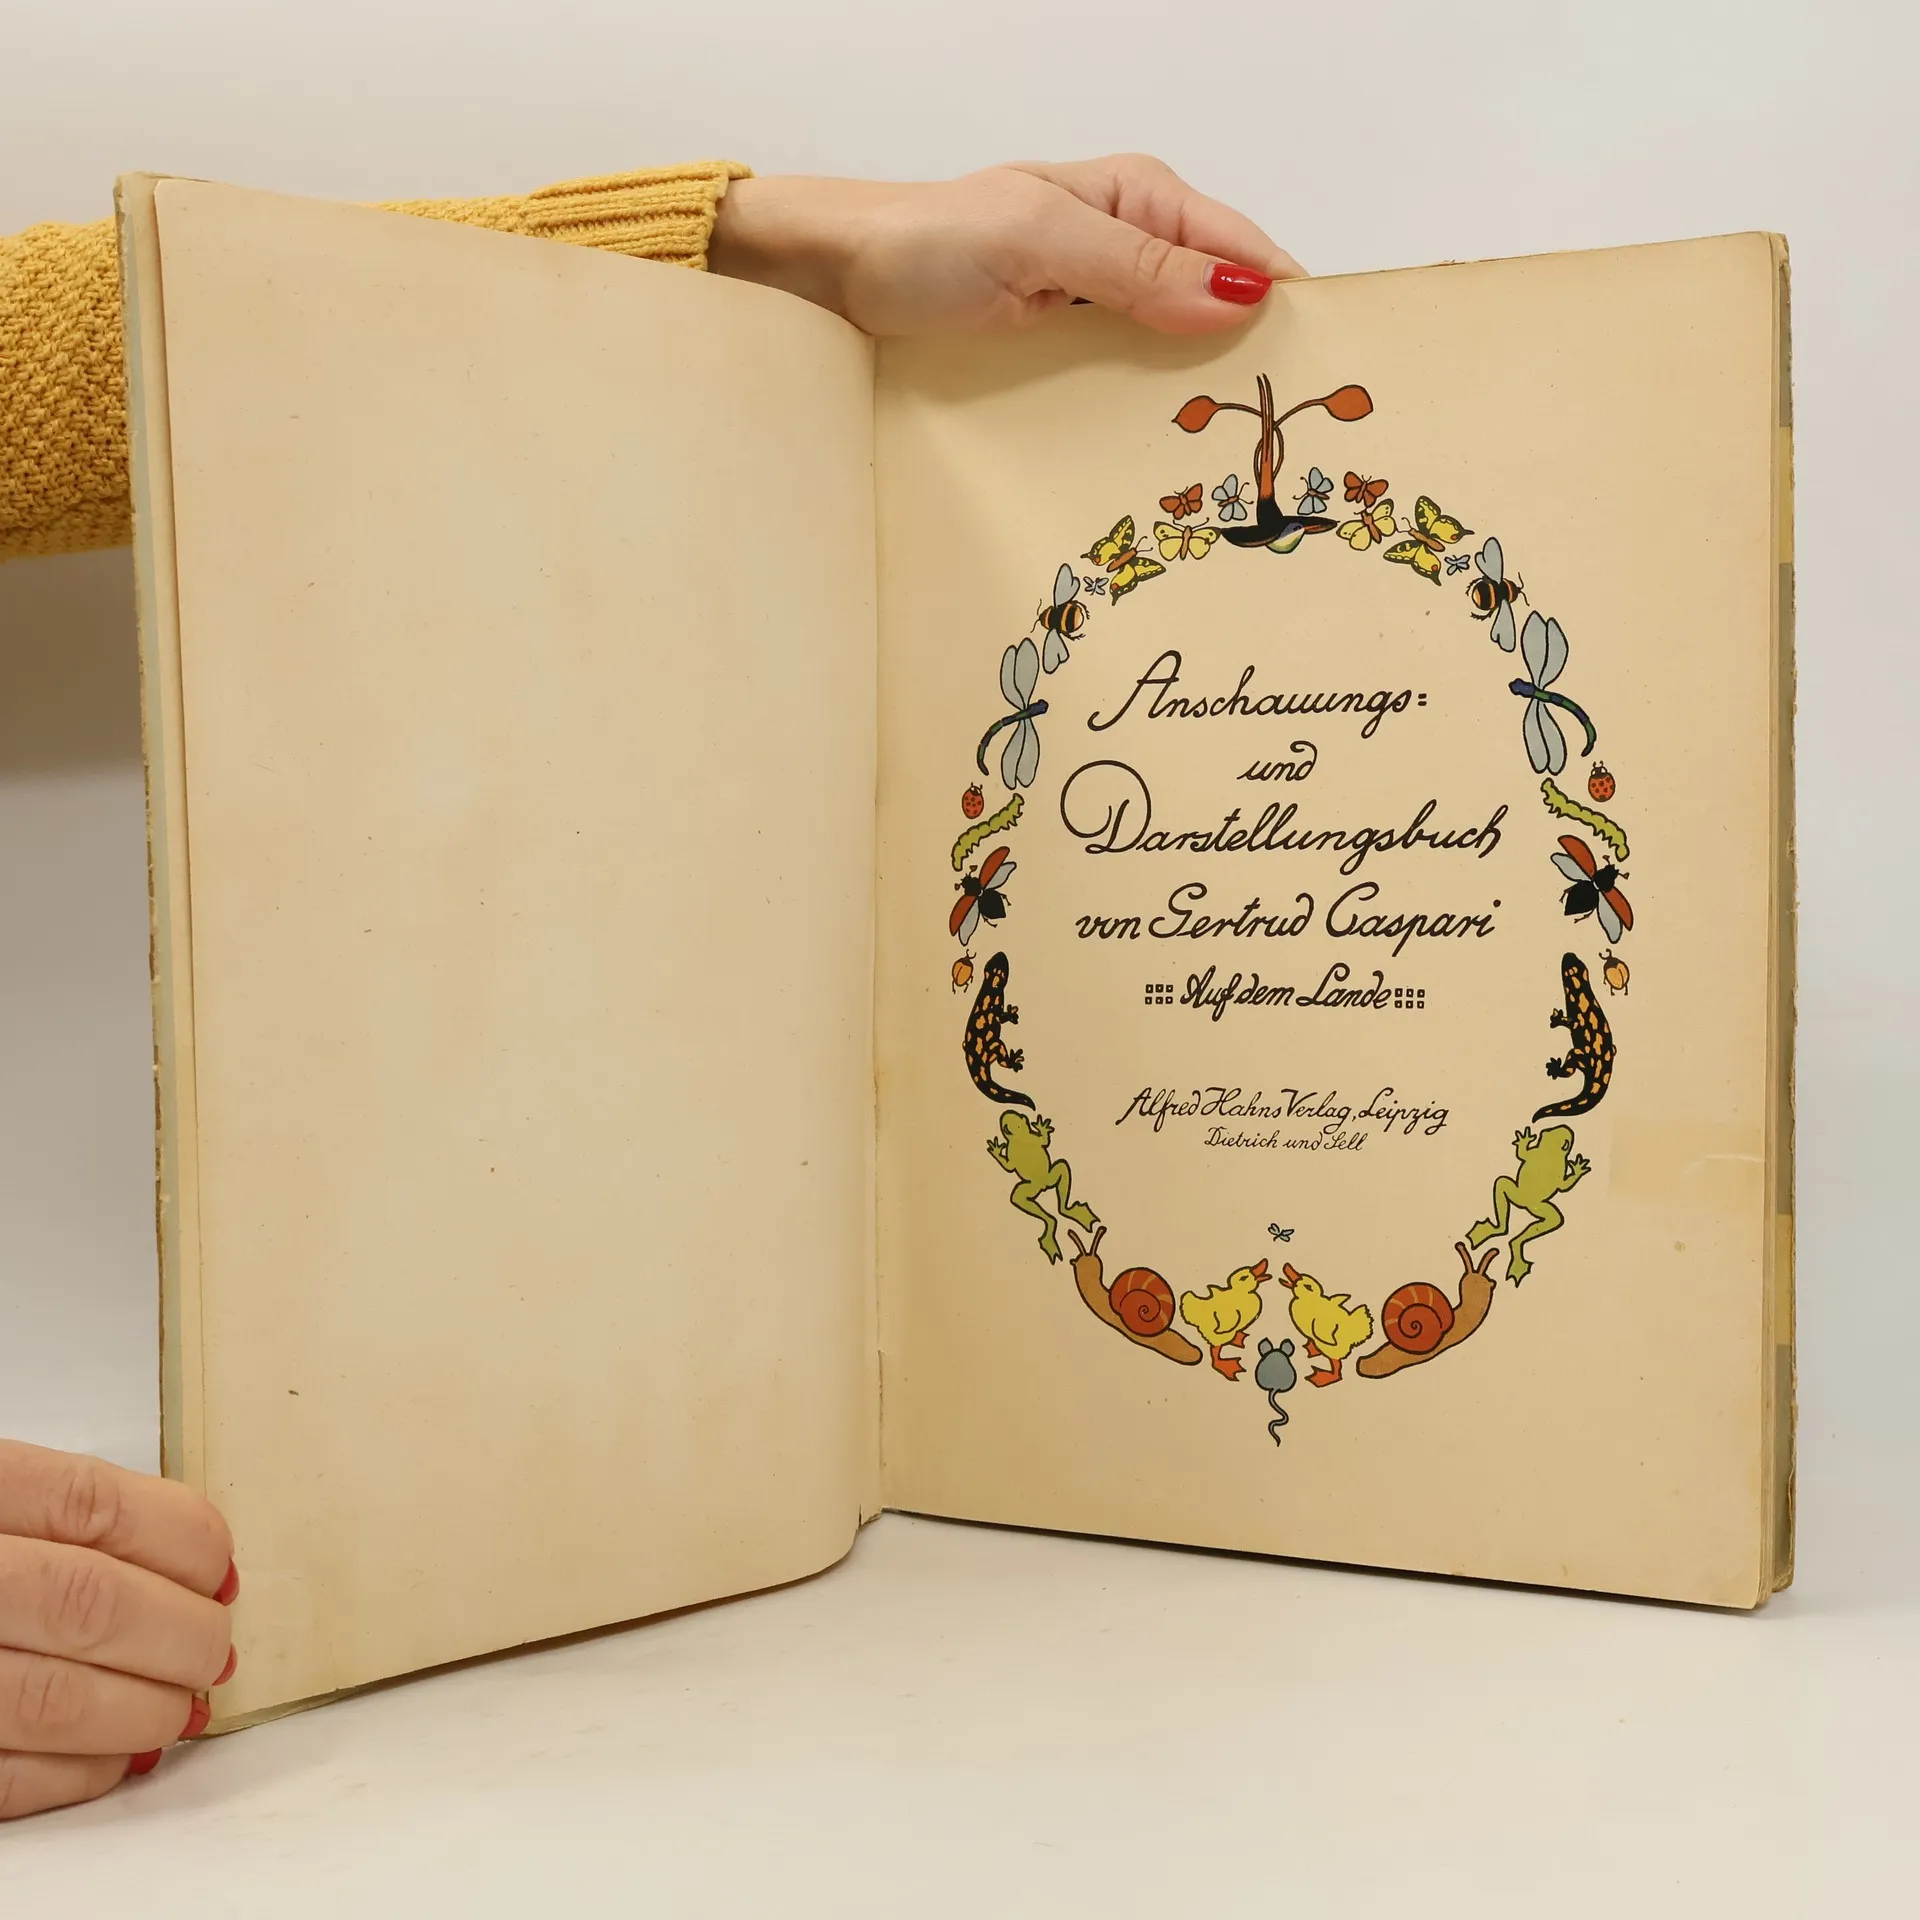 Anschauungs=
und
Darstellungsbuch
von Gertrud Caspari
Auf dem Lande
Alfred Hahns Verlag, Leipzig
Dietrich und Sell